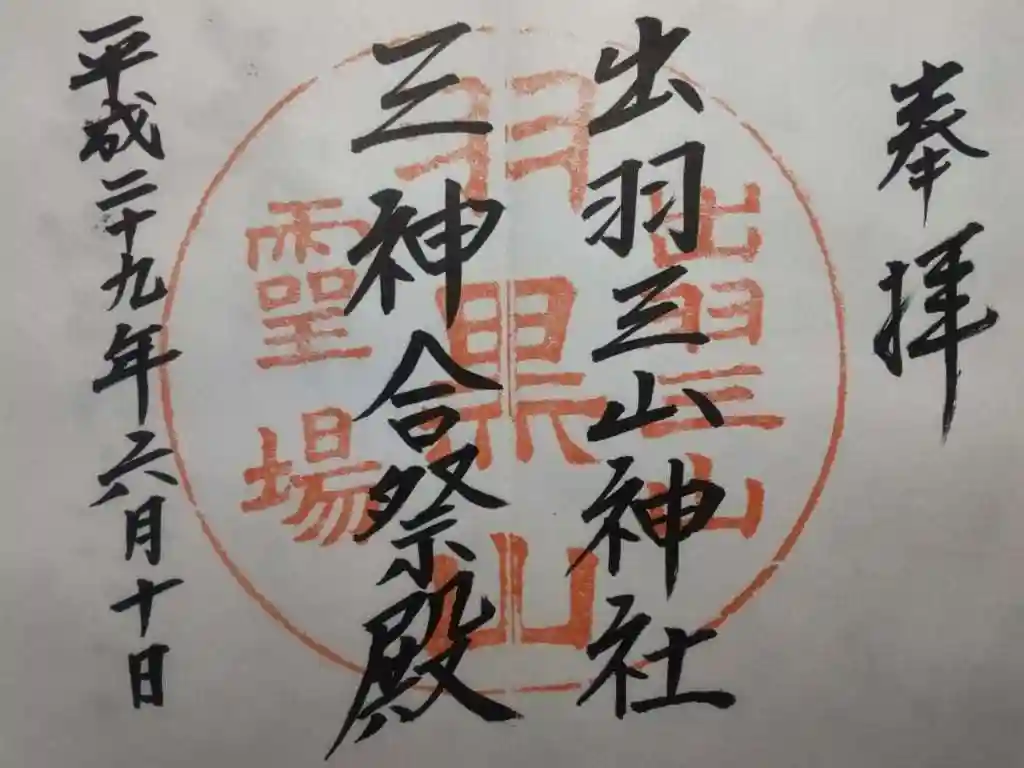 奉拝
出羽三山神社
三神合祭殿
平成二十九年六月十日
出羽三山
羽黒山
霊場